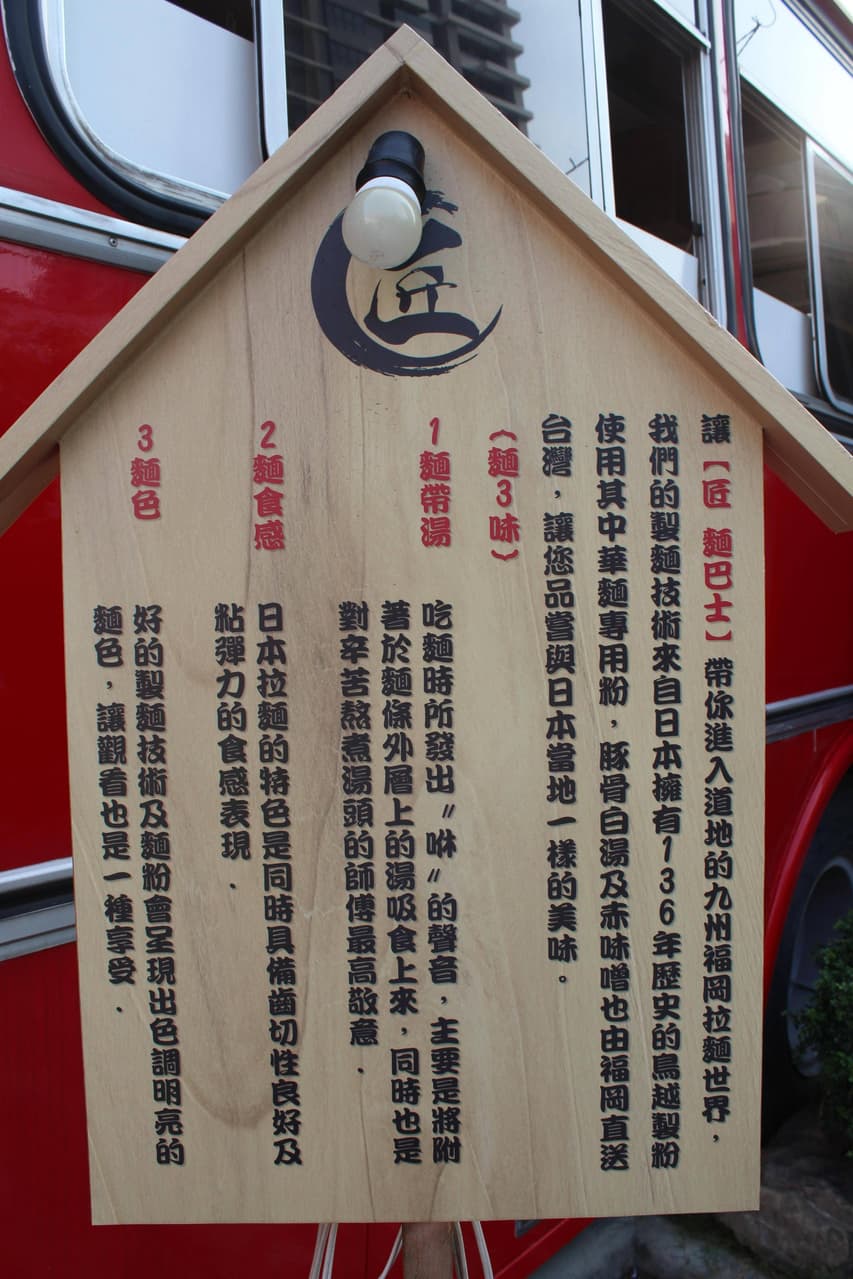 匠
讓【匠 麵巴士】帶你進入道地的九州福岡拉麵世界，
我們的製麵技術來自日本擁有136年歷史的鳥越製粉
使用其中華麵專用粉，豚骨白湯及赤味噌也由福岡直送
台灣，讓您品嘗與日本當地一樣的美味。
（麵3味）
1麵帶湯
吃麵時所發出〃咻〃的聲音，主要是將附
著於麵條外層上的湯吸食上來，同時也是
對辛苦熬煮湯頭的師傅最高敬意．
2麵食感
日本拉麵的特色是同時具備齒切性良好及
粘彈力的食感表現．
3麵色
好的製麵技術及麵粉會呈現出色調明亮的
麵色，讓觀看也是一種享受．